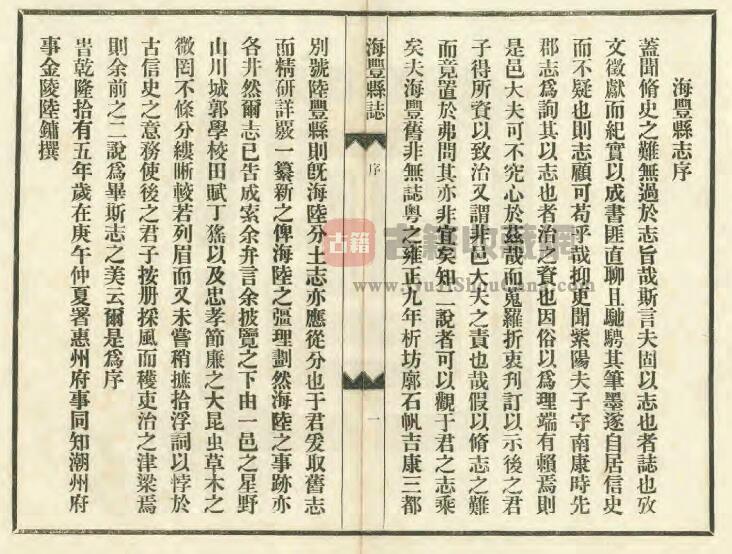 海豐縣志序
蓋聞脩史之難無過於志旨哉斯言夫固以志也者誌也攷
文徵獻而紀實以成書匪直聊且馳騁其筆墨遂自居信史
而不疑也則志顧可苟乎哉抑更聞紫陽夫子守南康時先
郡志為詢其以志也者治之資也因俗以為理端有賴焉則
是邑大夫可不究心於茲哉而蒐羅折衷刋訂以示後之君
子得所資以致治又謂非邑大夫之責也哉假以脩志之難
而竟置於弗問其亦非宜矣知二說者可以觀于君之志乘
矣夫海豐舊非無誌粤之雍正九年析坊廓石帆吉康三都
海豐縣誌
序
一
別號陸豐縣則旣海陸分土志亦應從分也于君爰取舊志
而精硏詳覈一纂新之俾海陸之彊理劃然海陸之事跡亦
各井然爾志已告成索余弁言余披覽之下由一邑之星野
山川城郭學校田賦丁猺以及忠孝節廉之大昆虫草木之
微罔不條分縷晰較若列眉而又未嘗稍摭拾浮詞以悖於
古信史之意務使後之君子按册採風而穫吏治之津梁焉
則余前之二說為畢斯志之美云爾是為序
旹乾隆拾有五年歲在庚午仲夏署惠州府事同知潮州府
事金陵陸鏞撰
古籍
古籍收藏網
www.GuJiShouCang.com